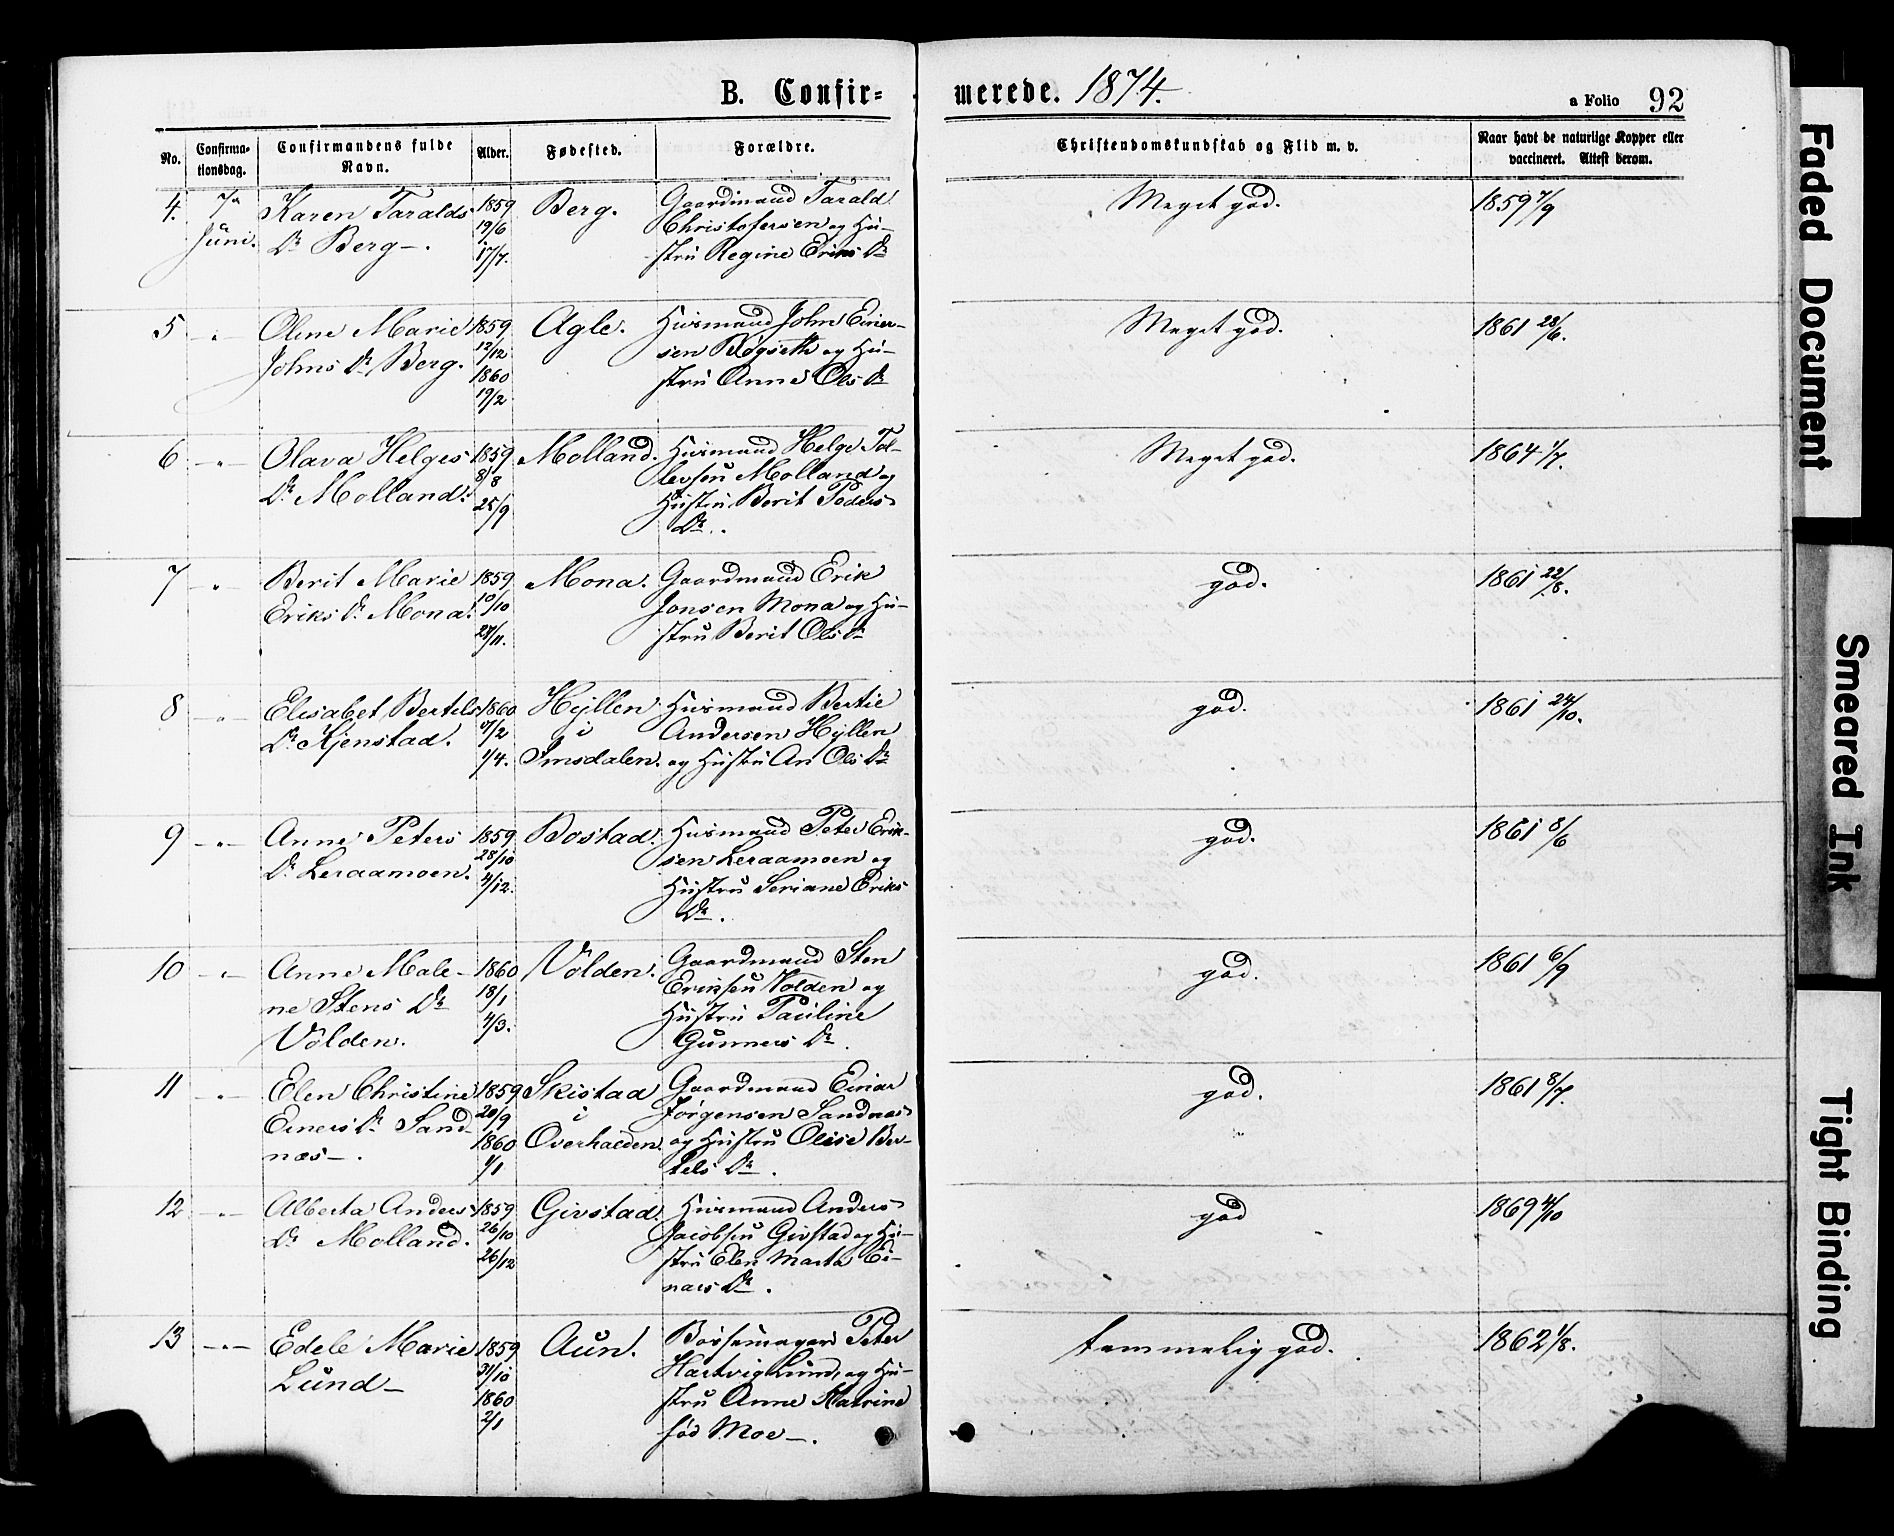 B. Confir=
merede. 1874.
a Folio 92
No.
Confirma-
tionsdag.
Confirmandens fulde
Navn.
Alder.
Fødested.
Forældre.
Christendomskundskab og Flid m. v.
Naar havt de naturlige Kopper eller
vaccineret. Attest derom.
4.
7de
Juni.
Karen Taralds
Dr Berg.
1859
19/6
17/7.
Berg.
Gaardmand Tarald
Christofersen og Hu-
stru Regine Eriks Dr
Meget god.
1859 7/9
5
"
Oline Marie
Johns Dr Berg.
1859
12/12
1860
19/2
Agle.
Husmand John Einer-
sen Bøgseth og Hu-
stru Anne Ols Dr
Meget god.
1861 28/6.
6
"
Olava Helges
Dr Molland.
1859
8/8
25/9
Molland.
Husmand Helge Tol-
levsen Molland og
Hustru Berit Peders
Dr.
Meget god.
1864 1/7.
7
"
Berit Marie
Eriks Dr Mona.
1859
10/10
27/11.
Mona.
Gaardmand Erik
Jonsen Mona og Hu-
stru Berit Ols Dr
god.
1861 22/8.
8
"
Elisabet Bertels
Dr Kjenstad.
1860
/2
1/4.
Hyllen
i
Imsdalen.
Husmand Bertil
Andersen Hyllen
og Hustru An Ols Dr
god.
1861 24/10.
9
"
Anne Peters
Dr Leraamoen.
1859
28/10
4/12.
Bostad.
Husmand Peter Erik-
sen Leraamoen og
Hustru Seriane Eriks
Dr.
god.
1861 8/6
10
"
Anne Male-
ne Stens Dr
Volden.
1860
18/1
4/3.
Volden.
Gaardmand Sten
Eriksen Volden og
Hustru Pauline
Gunners Dr.
god.
1861 6/9
11
"
Elen Christine
Einers Dr Sand-
næs.
1859
20/9
1860
1/1
Skistad
i
Overhalden.
Gaardmand Einar
Jørgensen Sandnæs
og Hustru Olise Ber-
tels Dr.
god.
1861 8/7.
12
"
Alberta Anders
Dr Molland.
1859
26/10
26/12
Givstad.
Husmand Anders
Jacobsen Givstad og Hu-
stru Elen Marta Ei-
nars Dr.
god
1869 4/10
13
"
Edele Marie
Lund
1859
31/10
1860
2/1
Aun.
Bøssemager Peter
Hartvig Lund, og Hu-
stru Anne Katrine
fød Moe.
temmelig god.
1862 1/8.
Faded Document
Smeared Ink
Tight Binding